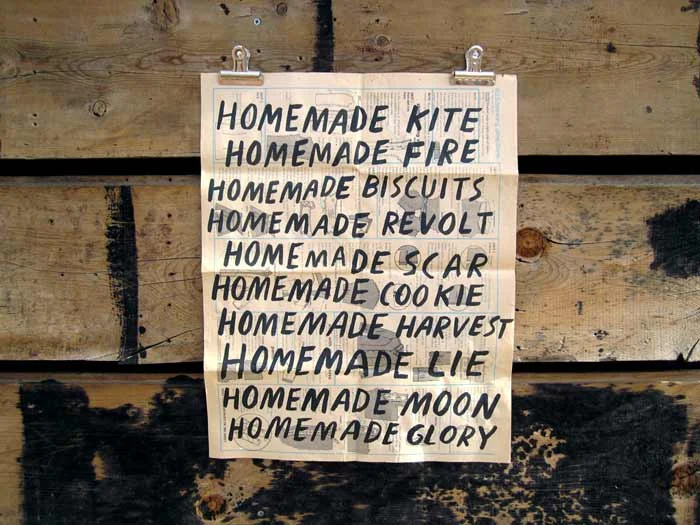 HOMEMADE KITE
HOMEMADE FIRE
HOMEMADE BISCUITS
HOMEMADE REVOLT
HOMEMADE SCAR
HOMEMADE COOKIE
HOMEMADE HARVEST
HOMEMADE LIE
HOMEMADE MOON
HOMEMADE GLORY